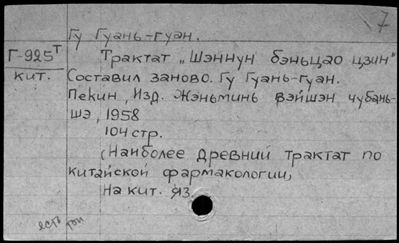 7
Гу Гуань-гуан.
Г-925т
кит.
Трактат „Шэннун бэньцао цзин"
Составил заново. Гу Гуань-гуан.
Пекин, Изд. Жэньминь вэйшэн чубань-
шэ, 1958
104 стр.
(Наиболее древний трактат по
китайской фармакологии,
На кит. яз.
есть